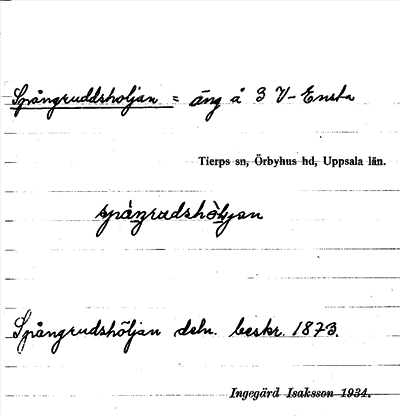 Spångruddsholjan = äng å 3 V-Ensta
Tierps sn, Örbyhus hd, Uppsala län.
spångrudshòljan
Spångrudshöljan deln. beskr. 1873.
Ingegärd Isaksson 1934.